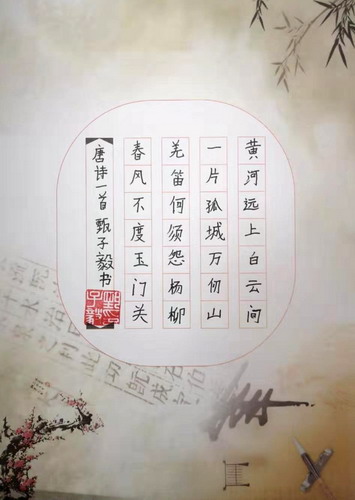 黄河远上白云间
一片孤城万仞山
羌笛何须怨杨柳
春风不度玉门关
唐诗一首 甄子毅书